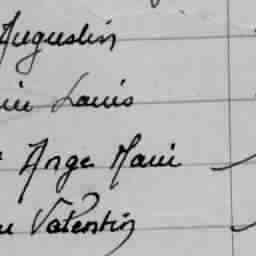 Augustin
Louis
Ange Marie
Valentin